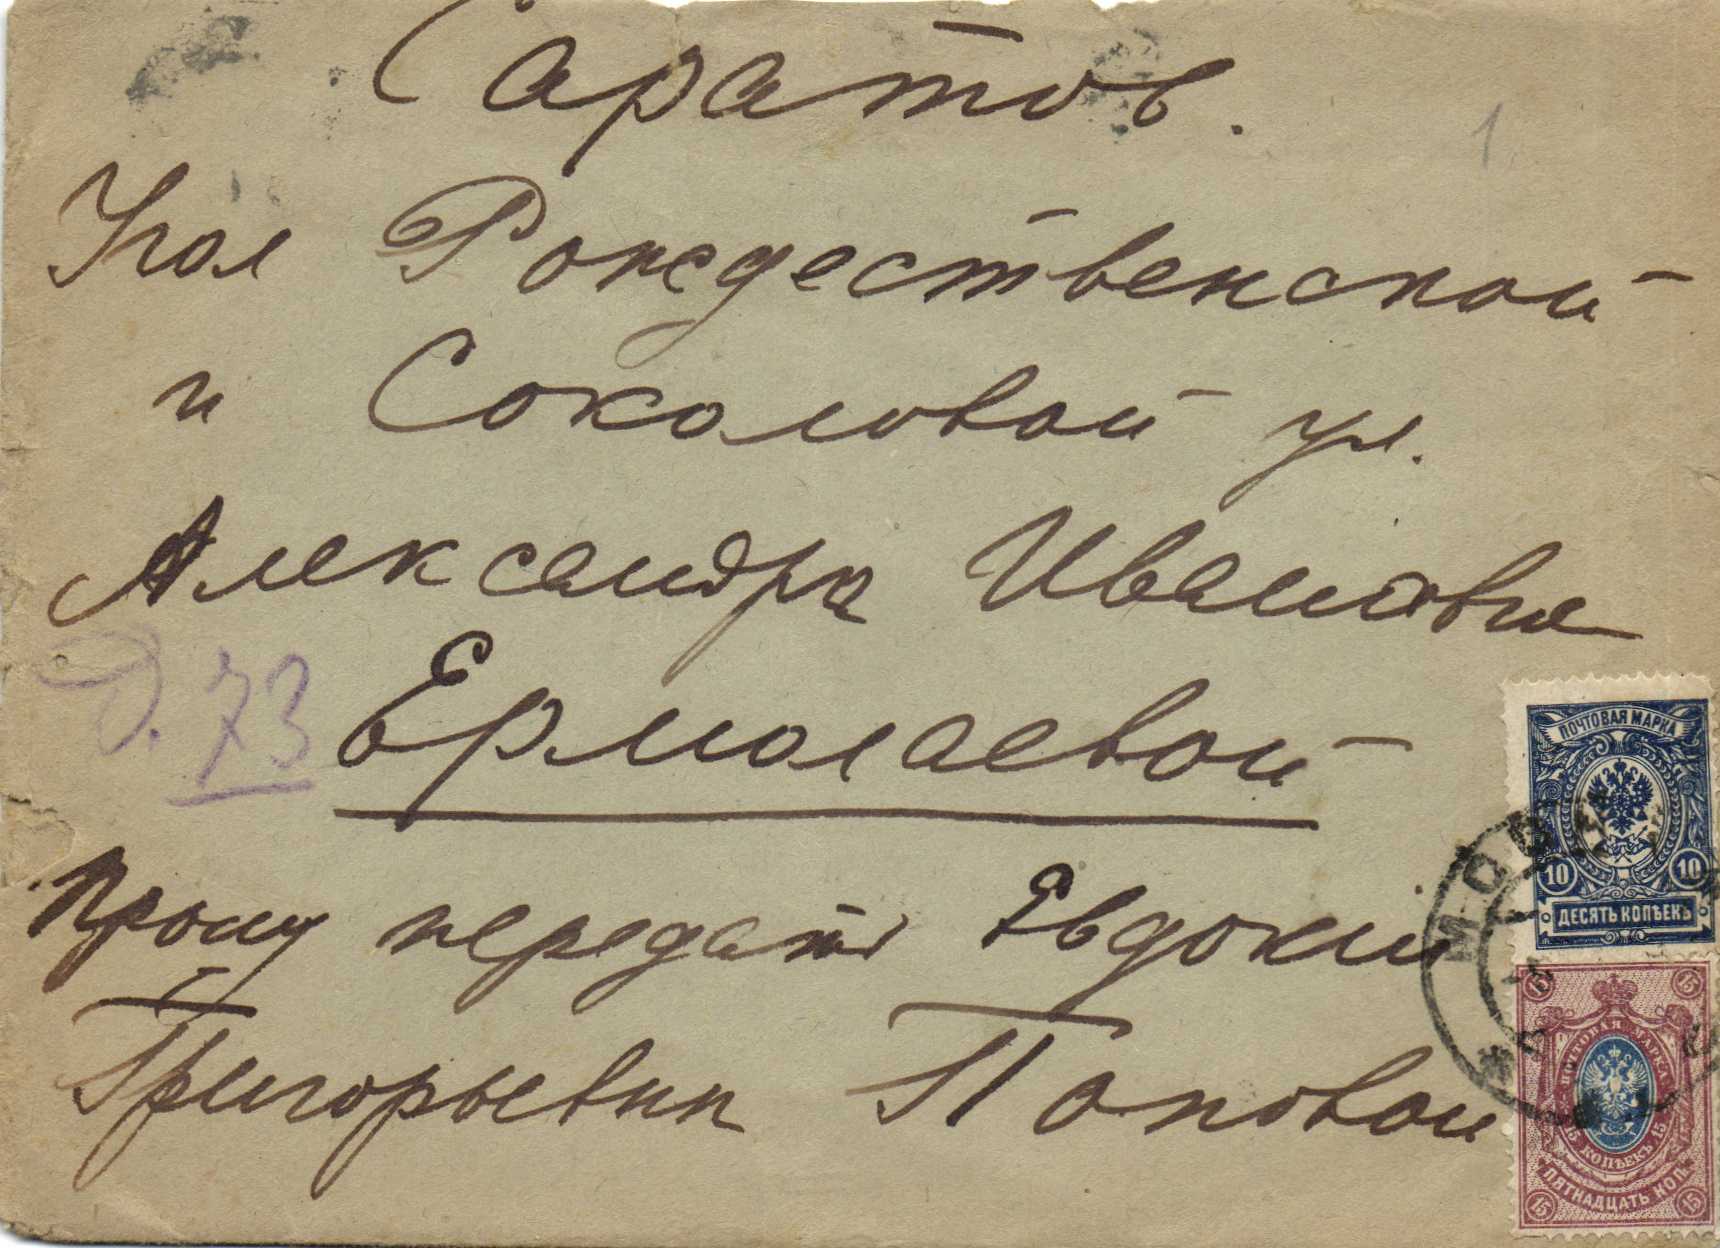 Саратов.
1
Угол Рождественской
и Соколовой ул.
Александре Ивановне
Д. 73
Ермолаевой
Прошу передать Евдокии
Григорьевне Поповой
ПОЧТОВАЯ МАРКА
10 10
ДЕСЯТЬ КОПѢЕКЪ
МОСКВА
15 15
ПОЧТОВАЯ МАРКА
15 КОПѢЕКЪ 15
ПЯТНАДЦАТЬ КОП.
15 15